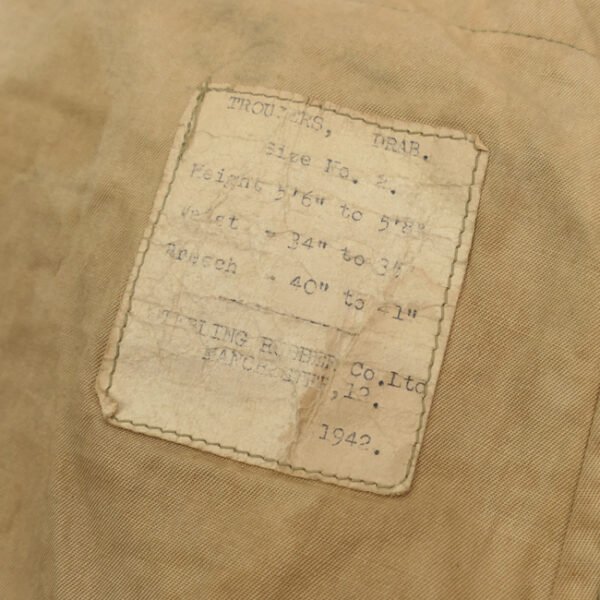 TROUSERS, DRAB.
Size No. 2.
Height 5'6" to 5'8"
Waist - 34" to 35
Breech - 40" to 41"
RUBBER Co.Ltd
MANCHESTER,12.
1942.